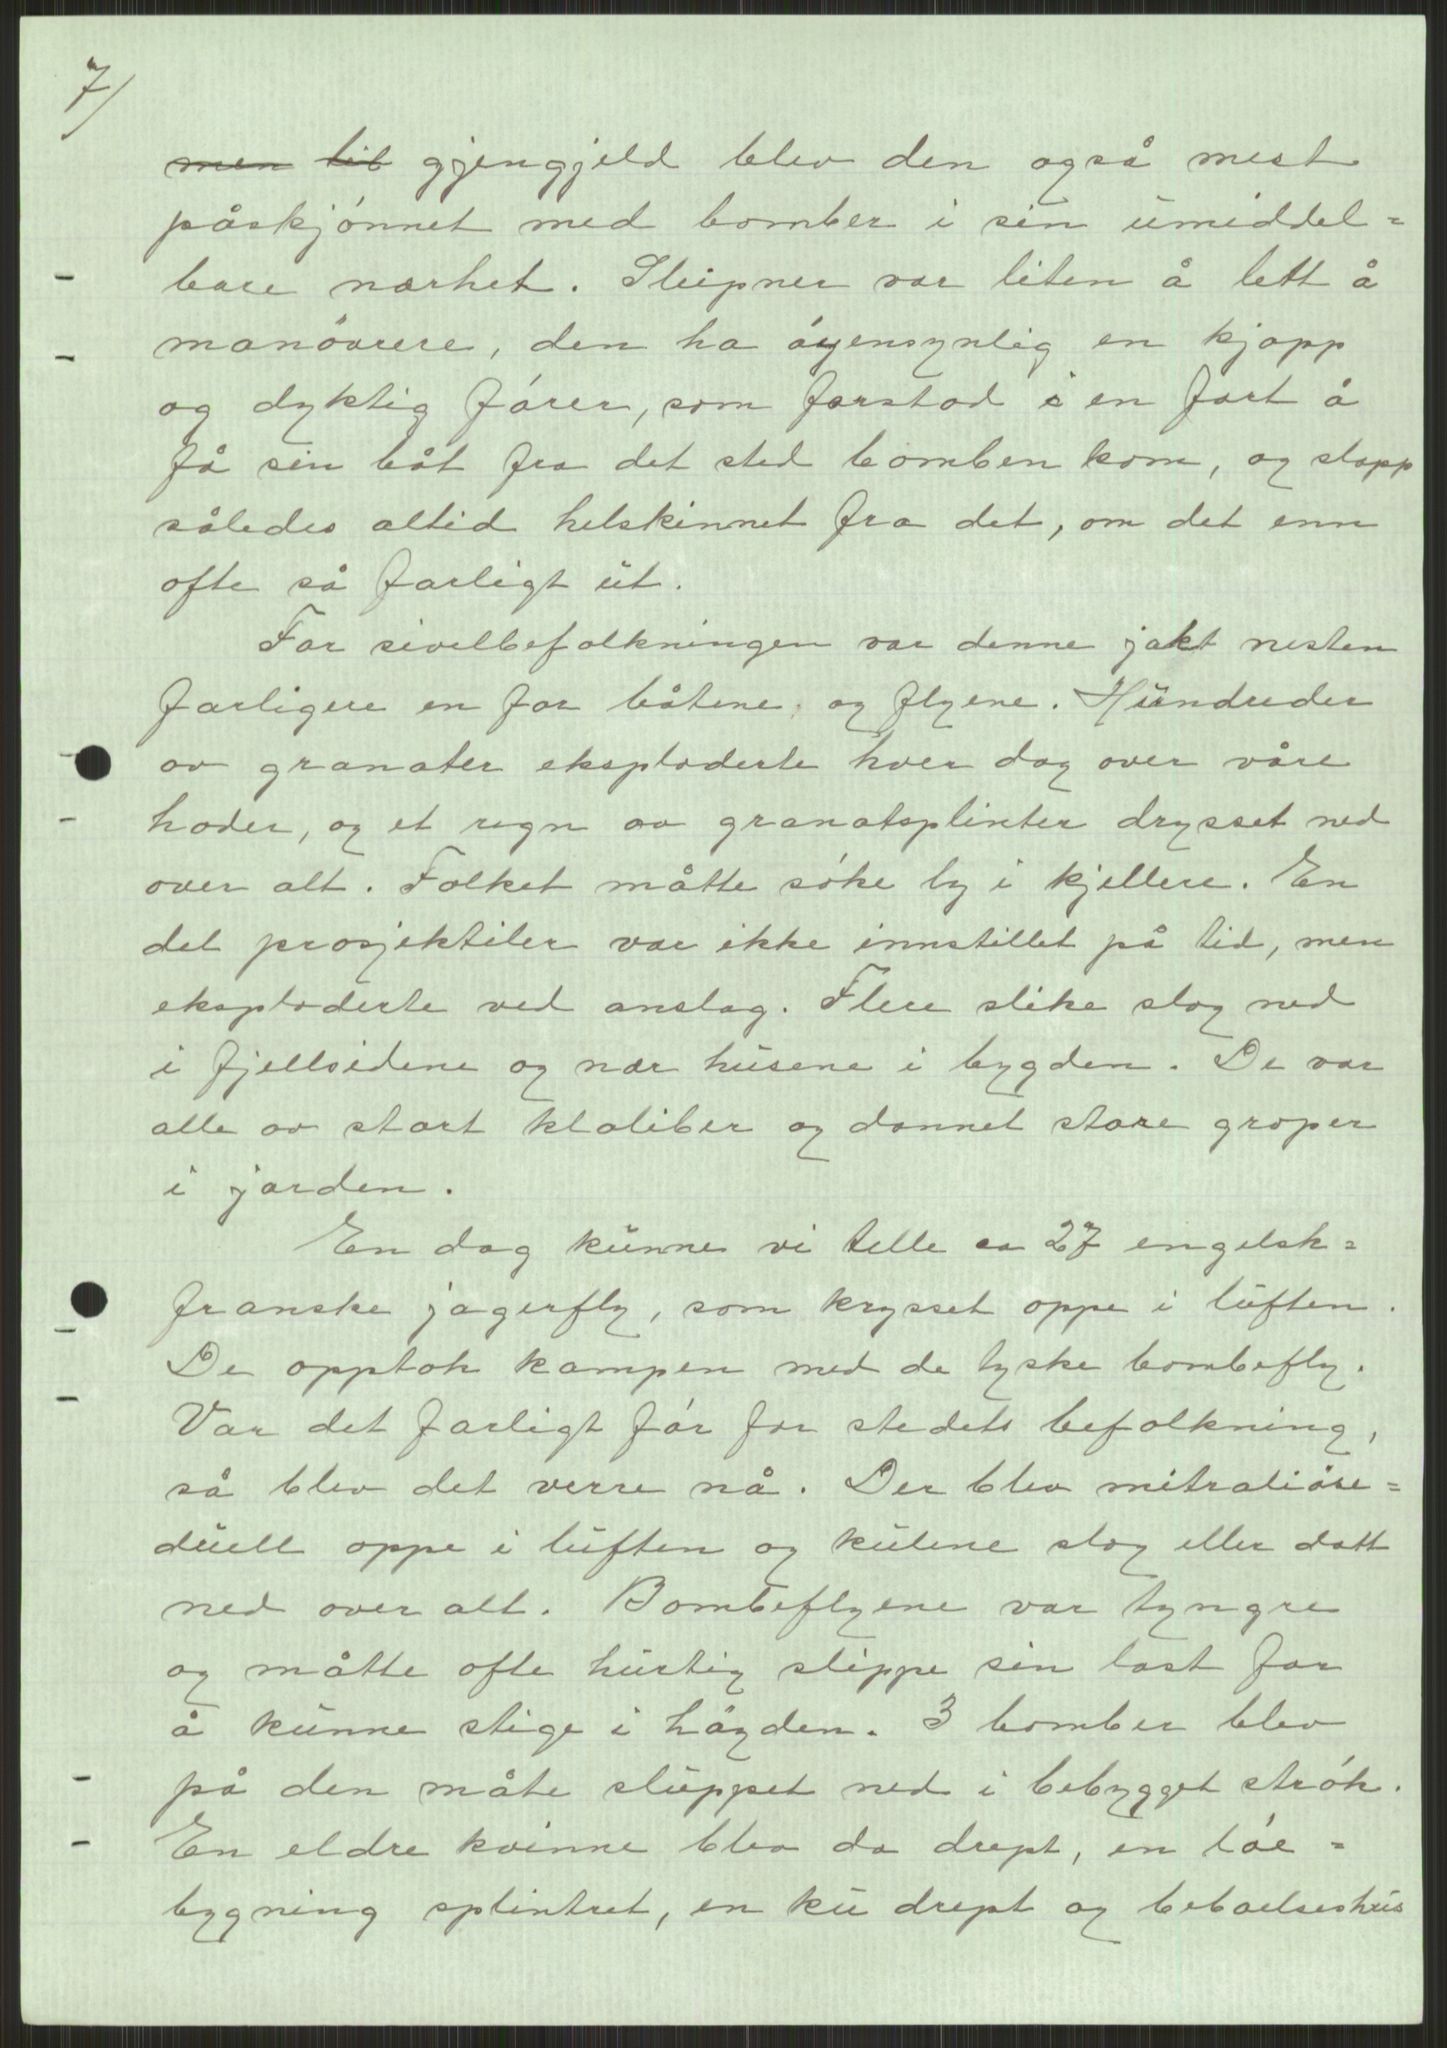 7/
men til gjengjeld blev den også mest
påskjónnet med bomber i sin umiddel=
bare nærhet. Sleipner var liten å lett å
manövrere, den ha óyensynlig en kjapp
og dyktig fórer, som forstod i en fart å
få sin båt fra det sted bomben kom, og slapp
således altid helskinnet fra det, om det enn
ofte så farligt ut.
For sivilbefolkningen var denne jakt nesten
farligere en for båtene og flyene. Hundreder
av granater eksploderte hver dag over våre
hoder, og et regn av granatsplinter drysset ned
over alt. Folket måtte sóke ly i kjellere. En
del prosjektiler var ikke innstillet på tid, men
eksploderte ved anslag. Flere slike slog ned
i fjellsidene og nær husene i bygden. De var
alle av stort klaliber og dannet store groper
i jorden.
En dag kunne vi telle ca 27 engelsk=
franske jagerfly, som krysset oppe i luften.
De opptok kampen med de tyske bombefly.
Var det farligt fór for stedets befolkning,
så blev det verre nå. Der blev mitraliöse=
duell oppe i luften og kulene slog eller datt
ned over alt. Bombeflyene var tyngre
og måtte ofte hurtig slippe sin last for
å kunne stige i höyden. 3 bomber blev
på den måte sluppet ned i bebygget strók.
En eldre kvinne blev da drept, en lóe=
bygning splintret, en ku drept og beboelseshus